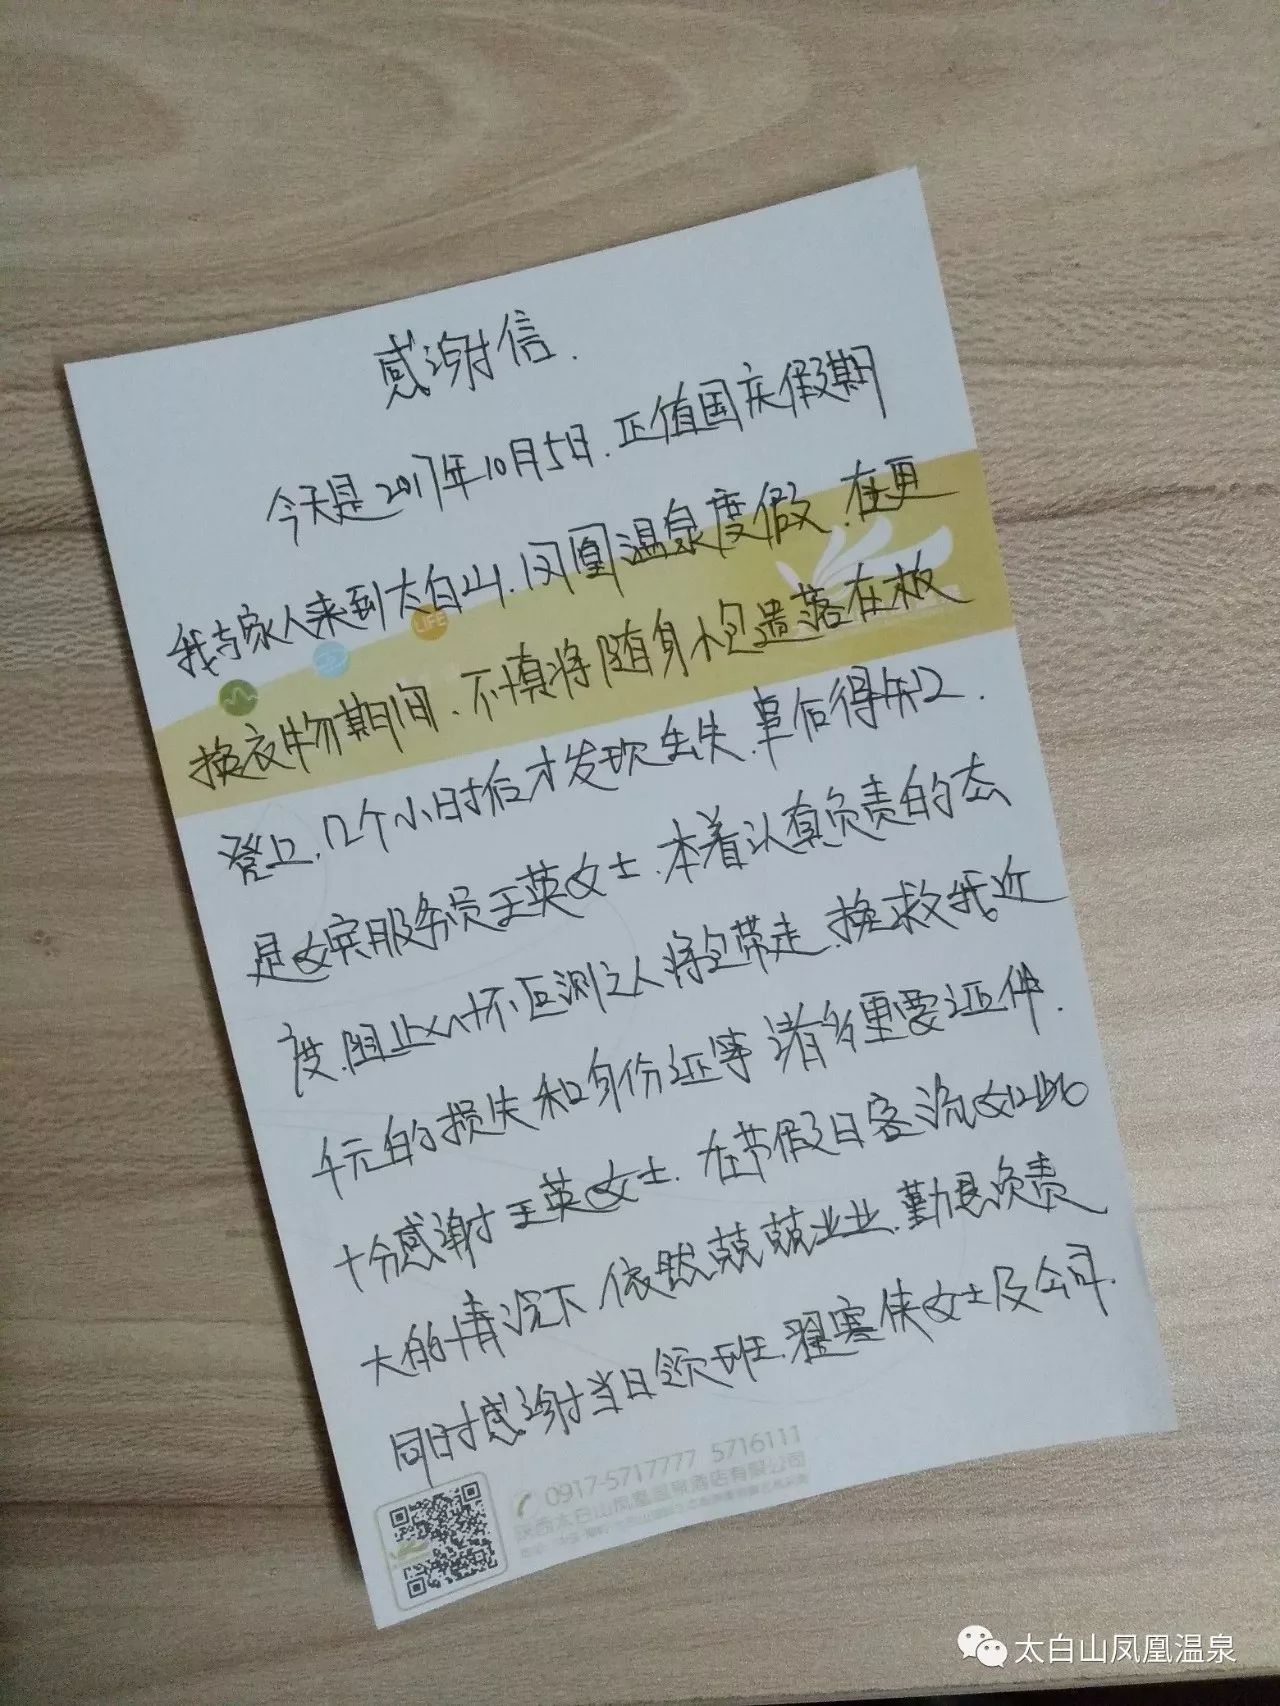 感谢信.
今天是2017年10月5日.正值国庆假期
我与家人来到太白山.凤凰温泉度假.在更
换衣物期间.不慎将随身小包遗落在板
凳上.几个小时后才发现丢失.事后得知.
是女宾服务员王英女士.本着认真负责的态
度.阻止心怀叵测之人将包带走.挽救我近
千元的损失和身份证等诸多重要证件.
十分感谢王英女士.在节假日客流如此
大的情况下.依然兢兢业业.勤恳负责
同时感谢当日领班.翟寒侠女士及公司.
LIFE
0917-5717777 5716111
陕西太白山凤凰温泉酒店有限公司
太白山凤凰温泉